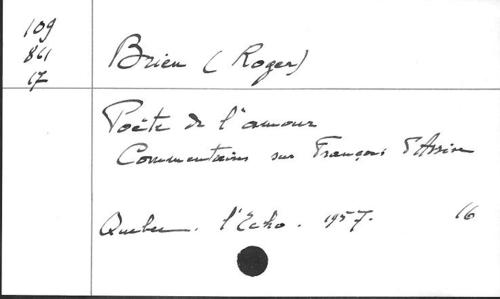 109
861
17
Brien (Roger)
Poète de l'amour
Commentaires sur François d'Assise
Quebec. l'Echo. 1957. 16